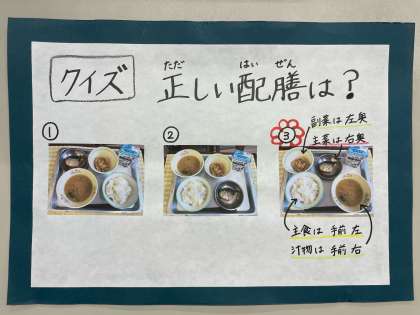 クイズ
ただ はい ぜん
正しい配膳は？
①
②
③
副菜は左奥
主菜は右奥
主食は 手前 左
汁物は 手前 右